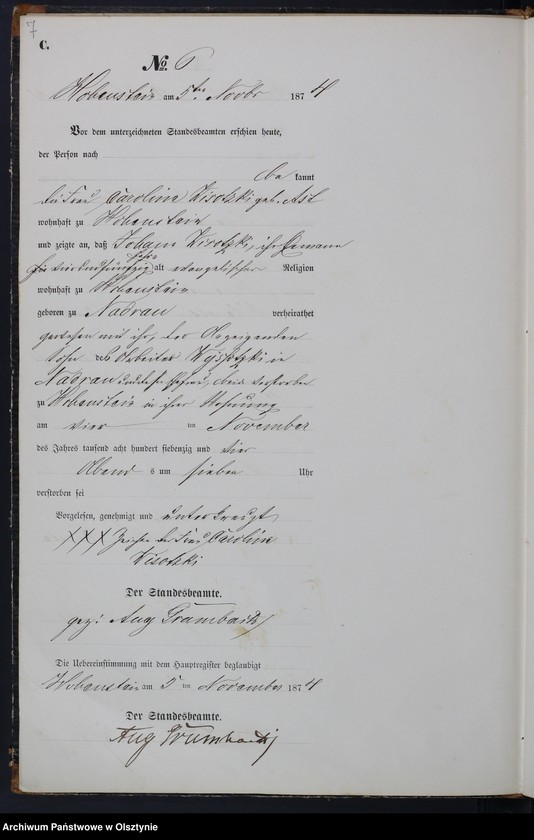 7
C.
№ 6
Hohenstein am 5ten Novbr 1874
Vor dem unterzeichneten Standesbeamten erschien heute,
der Person nach
be kannt
die Frau Caroline Wisotzki geb. Ast
wohnhaft zu Hohenstein
und zeigte an, daß Johann Wisotzki, ihr Ehemann
Jahre
vier und fünfzig alt evangelischer Religion
wohnhaft zu Hohenstein
geboren zu Nadrau verheirathet
gewesen mit ihr, der Anzeigenden
Sohn des Arbeiter Wyssotzki in
Nadrau und dessen Ehefrau, beide verstorben
zu Hohenstein in ihrer Wohnung
am vier ten November
des Jahres tausend acht hundert siebenzig und vier
Abend s um sieben Uhr
verstorben sei
Vorgelesen, genehmigt und unterkreuzt
XXX Zeichen der Frau Caroline
Wisotzki
Der Standesbeamte.
gez: Aug
Die Uebereinstimmung mit dem Hauptregister beglaubigt
Hohenstein am 5 ten November 1874
Der Standesbeamte.
Aug
Archiwum Państwowe w Olsztynie